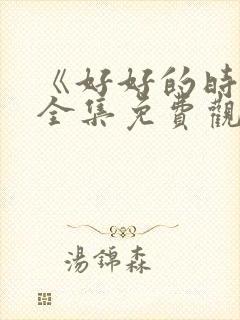 《好好的時
全集免費觀
湯錦森